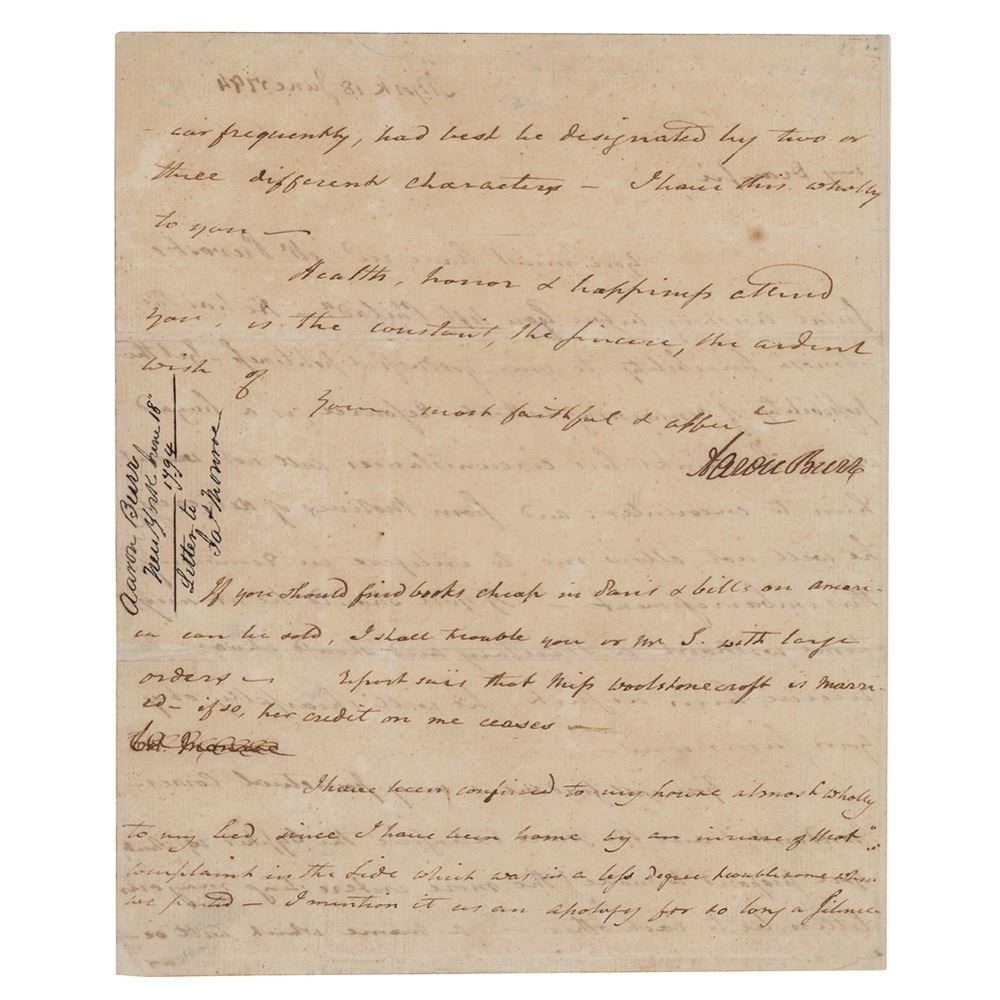 cur frequently, had best be designated by two or
three different characters — I have this wholly
to you —
Health, honor & happiness attend
you, is the constant, the sincere, the ardent
wish of
Your most faithful & affec
Aaron Burr
Aaron Burr
New York June 18
1794
Letter to
Jas Monroe
If you should find books cheap in Paris & bills on Ameri-
ca can be sold, I shall trouble you or Mr S. with large
orders — Report says that Miss Woolstonecroft is marri-
ed — if so, her credit on me ceases —
Col. Monroe
I have been confined to my house almost wholly
to my bed, since I have been home by an increase of that
complaint in the side which was in a less degree troublesome when
we parted — I mention it as an apology for so long a silence